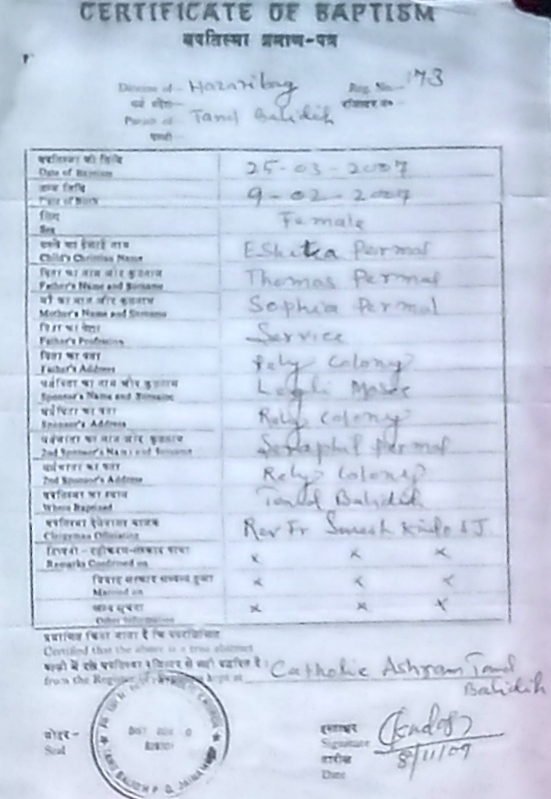 CERTIFICATE OF BAPTISM
बपतिस्मा प्रमाण-पत्र
Diocese of - Hazaribag Reg. No. - 173
धर्म प्रदेश - रजिस्टर नं० -
Parish of - Tand Balidih
पल्ली -
बपतिस्मा की तिथि
Date of Baptism 25-03-2007
जन्म तिथि
Date of Birth 9-02-2007
लिंग
Sex Female
बच्चे का ईसाई नाम
Child's Christian Name Eshika Permal
पिता का नाम और कुलनाम
Father's Name and Surname Thomas Permal
माँ का नाम और कुलनाम
Mother's Name and Surname Sophia Permal
पिता का पेशा
Father's Profession Service
पिता का पता
Father's Address Rely Colony
धर्मपिता का नाम और कुलनाम
Sponsor's Name and Surname
धर्मपिता का पता
Sponsor's Address Rely Colony
धर्ममाता का नाम और कुलनाम
2nd Sponsor's Name and Surname Permal
धर्ममाता का पता
2nd Sponsor's Address Rely Colony
बपतिस्मा का स्थान
Where Baptised Tand Balidih
बपतिस्मा देनेवाला याजक
Clergyman Officiating Rev Fr Suresh Kindo S.J.
टिप्पणी - दृढ़ीकरण-संस्कार पाया
Remarks Confirmed on x x x
विवाह संस्कार सम्पन्न हुआ
Married on x x x
अन्य सूचना
Other Information x x x
प्रमाणित किया जाता है कि उपरलिखित
Certified that the above is a true abstract
from the Register of kept at Catholic Ashram Tand
Balidih
मोहर -
Seal
हस्ताक्षर
Signature
तारीख
Date 8/11/09